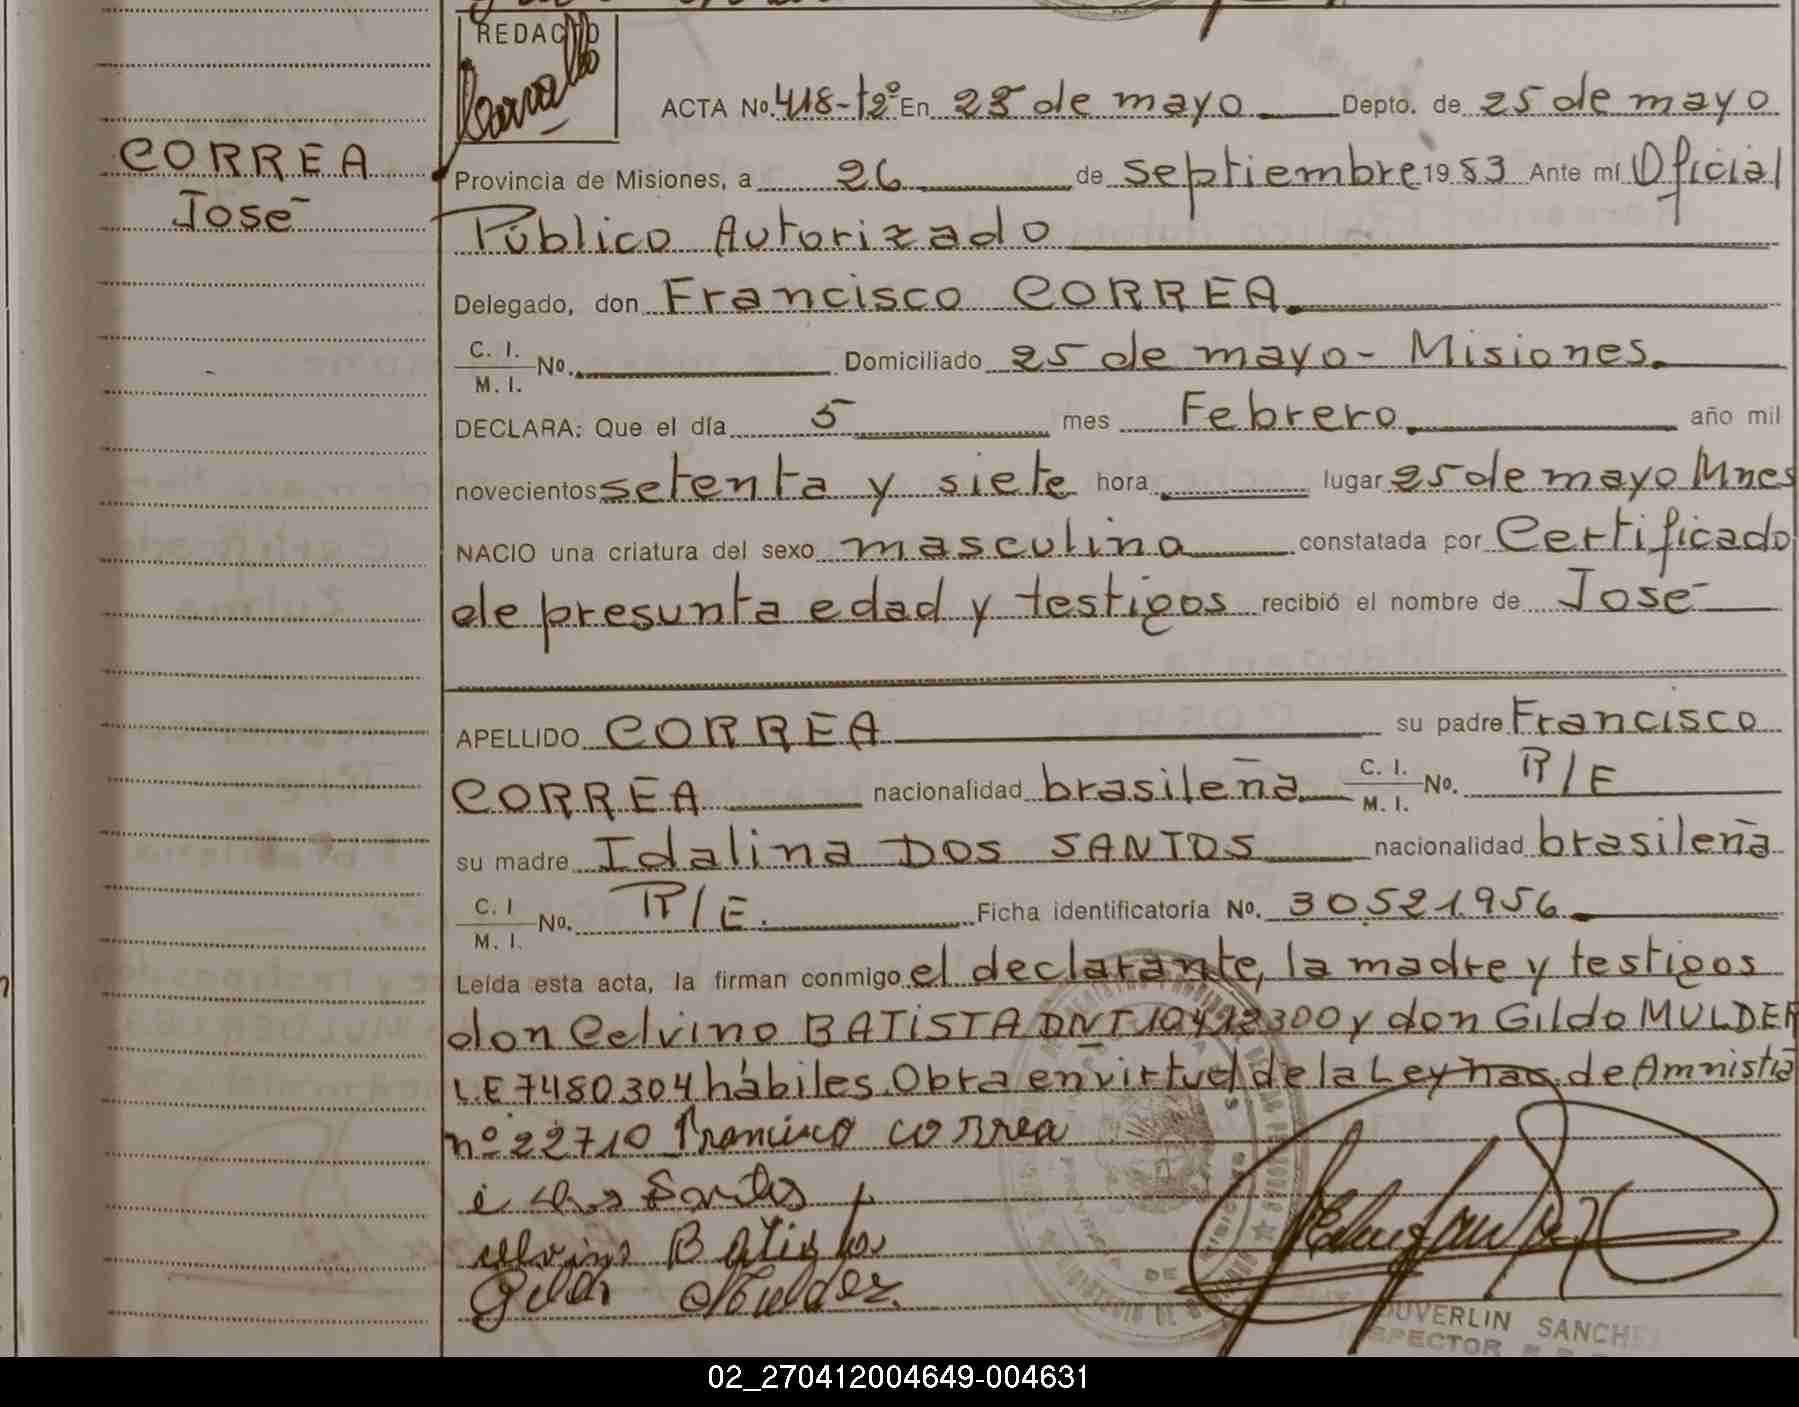 REDACTO
Carvallo
CORREA
José
ACTA No. 418-tº2º En 25 de mayo Depto. de 25 de mayo
Provincia de Misiones, a 26 de septiembre 1983 Ante mí Oficial
Público Autorizado
Delegado, don Francisco CORREA.
C. I. / M. I. No. Domiciliado 25 de mayo - Misiones.
DECLARA: Que el día 5 mes Febrero. año mil
novecientos setenta y siete hora lugar 25 de mayo Mnes
NACIO una criatura del sexo masculino constatada por Certificado
de presunta edad y testigos recibió el nombre de José
APELLIDO CORREA su padre Francisco
CORREA nacionalidad brasileña C. I. / M. I. No. R/E
su madre Idalina DOS SANTOS nacionalidad brasileña
C. I / M. I. No. R/E. Ficha identificatoria No. 30521956.
Leída esta acta, la firman conmigo el declarante, la madre y testigos
don Celvino BATISTA DNI 10412300 y don Gildo MULDER
L.E 7480304 hábiles. Obra en virtud de la Ley nac. de Amnistía
nº 22710 Francisco correa
i dos Santos
celvino Batista
Gildo Mulder
OUVERLIN SANCHE
02_270412004649-004631